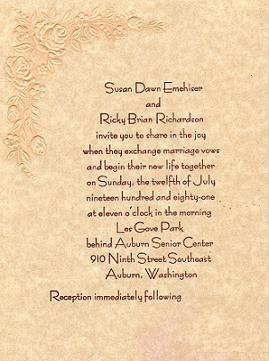 Susan Dawn Emehiser
and
Ricky Brian Richardson
invite you to share in the joy
when they exchange marriage vows
and begin their new life together
on Sunday, the twelfth of July
nineteen hundred and eighty-one
at eleven o'clock in the morning
Les Gove Park
behind Auburn Senior Center
910 Ninth Street Southeast
Auburn, Washington
Reception immediately following